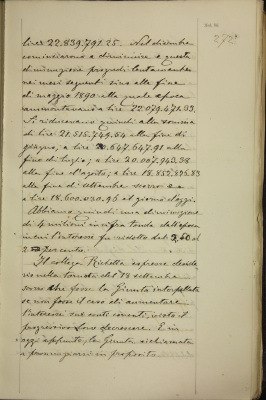 272
lire 22.839.791.25. Nel dicembre
cominciarono a diminuire e questa
diminuzione proseguì lentamente
nei mesi seguenti sino alla fine
di maggio 1890 alla quale epoca
ammontavano a lire 22.079.471.33
Si riducevano quindi alla somma
di lire 21.515.749.54 alla fine di
giugno; a lire 20.647.647.91 alla
fine di luglio; a lire 20.007.943.38
alla fine d'agosto; a lire 18.852.895.83
alla fine di settembre scorso e a
lire 18.600.030.96 al giorno d'oggi.
Abbiamo quindi una diminuzione
di 4 milioni in cifra tonda dall'epoca
in cui l'interesse fu ridotto dal 3,50 al
2 per cento.
Il collega Richetta espresse deside-
rio nella tornata del 18 settembre
scorso che fosse la Giunta interpellata
se non fosse il caso di aumentare
l'interesse sui conti correnti, visto il
progressivo loro decrescere. E in
oggi appunto la Giunta è chiamata
a pronunziarsi in proposito.